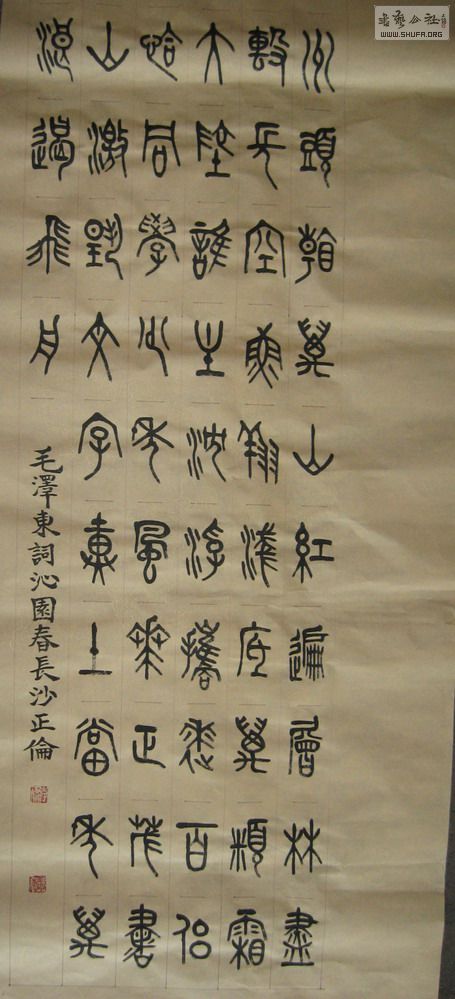 書藝公社
WWW.SHUFA.ORG
州頭看萬山紅遍層林盡
擊長空魚翔淺底萬類霜
大地誰主沈浮攜來百侶
恰同學少年風華正茂書
山激揚文字糞土當年萬
浪遏飛舟
毛澤東詞沁園春長沙正倫